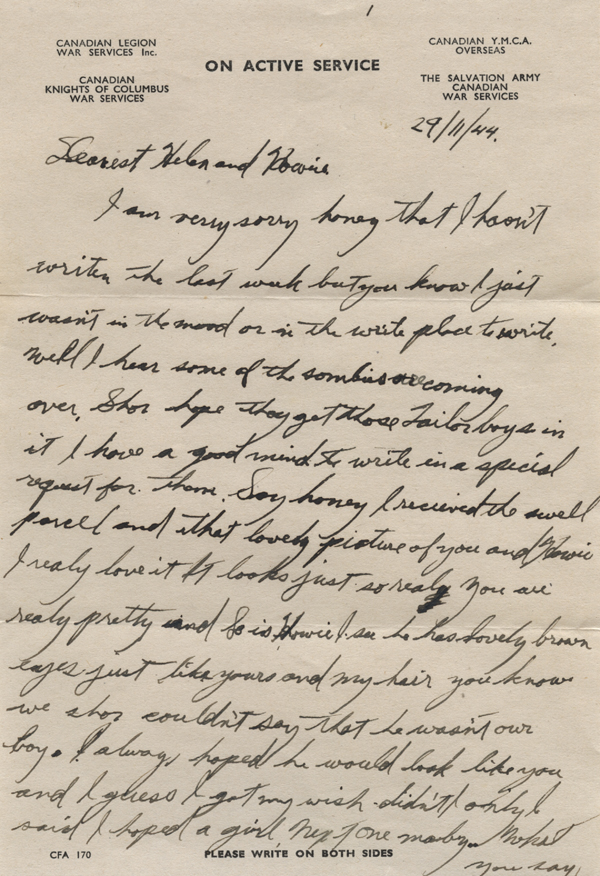 1
CANADIAN LEGION
WAR SERVICES Inc.
CANADIAN
KNIGHTS OF COLUMBUS
WAR SERVICES
ON ACTIVE SERVICE
CANADIAN Y.M.C.A.
OVERSEAS
THE SALVATION ARMY
CANADIAN
WAR SERVICES
29/11/44.
Dearest Helen and Howie
I am very sorry honey that I hasn't
writen the last week but you know I just
wasn't in the mood or in the write place to write.
Well I hear some of the sombies are coming
over. Shor hope they get those Tailor boys in
it I have a good mind to write in a special
request for them. Say honey I recieved the swell
parcel and that lovely picture of you and Howie
I realy love it It looks just so real you are
realy pretty and So is Howie I see he has lovely brown
eyes just like yours and my hair you know
we shor couldn't say that he wasn't our
boy. I always hoped he would look like you
and I guess I got my wish didn't I only I
said I hoped a girl Nept one maby. What
you say,
CFA 170
PLEASE WRITE ON BOTH SIDES